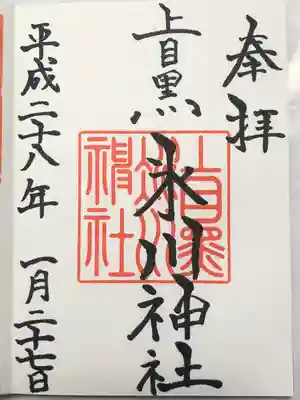 奉拝
上目黒氷川神社
平成二十八年 一月二十七日